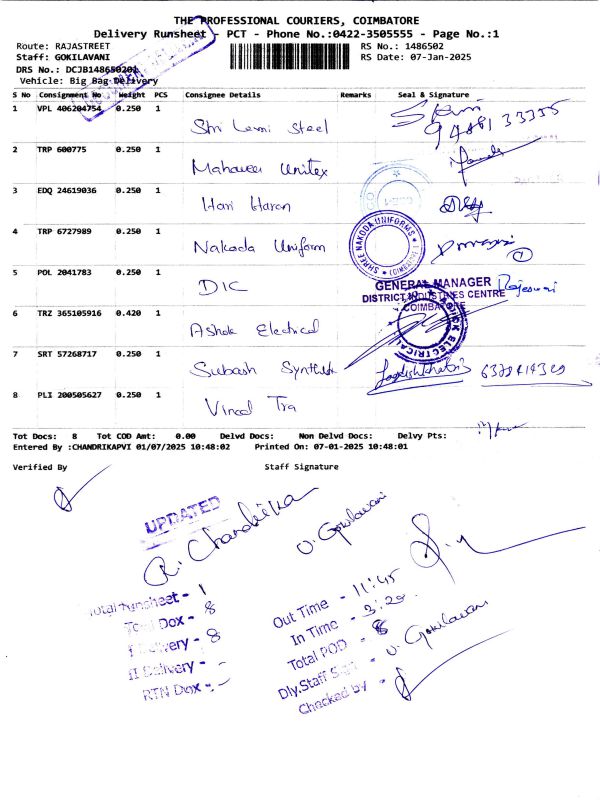 THE PROFESSIONAL COURIERS, COIMBATORE
Delivery Runsheet - PCT - Phone No.:0422-3505555 - Page No.:1
Route: RAJASTREET RS No.: 1486502
Staff: GOKILAVANI RS Date: 07-Jan-2025
DRS No.: DCJB148650201
Vehicle: Big Bag Delivery
S No Consignment No Weight PCS Consignee Details Remarks Seal & Signature
1 VPL 406204754 0.250 1 Steel
2 TRP 600775 0.250 1 Mahaveer Unitex
3 EDQ 24619036 0.250 1 Hari Haran
4 TRP 6727989 0.250 1 Nakoda Uniform
SHREE NAKODA UNIFORMS
5 POL 2041783 0.250 1 DIC
GENERAL MANAGER Rajeswari
DISTRICT INDUSTRIES CENTRE
COIMBATORE
6 TRZ 365105916 0.420 1 Ashok Electrical
ELECTRICAL
7 SRT 57268717 0.250 1 Subash Synthetic
8 PLI 200505627 0.250 1 Vinod Tra
Tot Docs: 8 Tot COD Amt: 0.00 Delvd Docs: Non Delvd Docs: Delvy Pts:
Entered By :CHANDRIKAPVI 01/07/2025 10:48:02 Printed On: 07-01-2025 10:48:01
Verified By Staff Signature
UPDATED
R. Chandrika
V. Gokilavani
Total Runsheet - 1
Total Dox - 8
I Delivery - 8
II Delivery - -
RTN Dox - -
Out Time - 11:45
In Time - 3:20
Total POD - 8
Dly.Staff Sign - V. Gokilavani
Checked by -